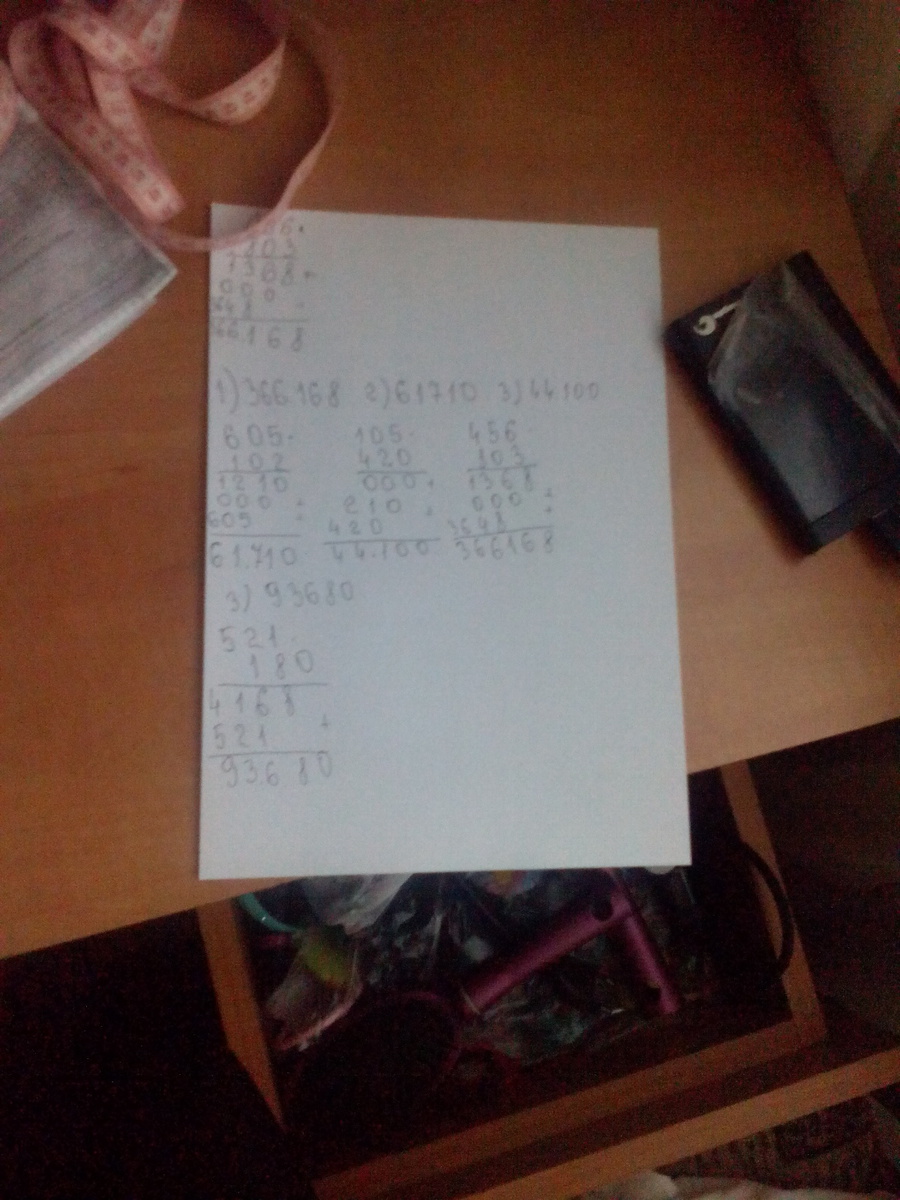 803
1368
000
3648
366.168
1) 366.168 2) 61710 3) 44.100
605. 105. 456.
102 420 103
1210 000 + 1368
000 + 210 + 000 +
605 420 3648
61.710 44.100 366168
3) 93680
521.
180
4168
521 +
93.680